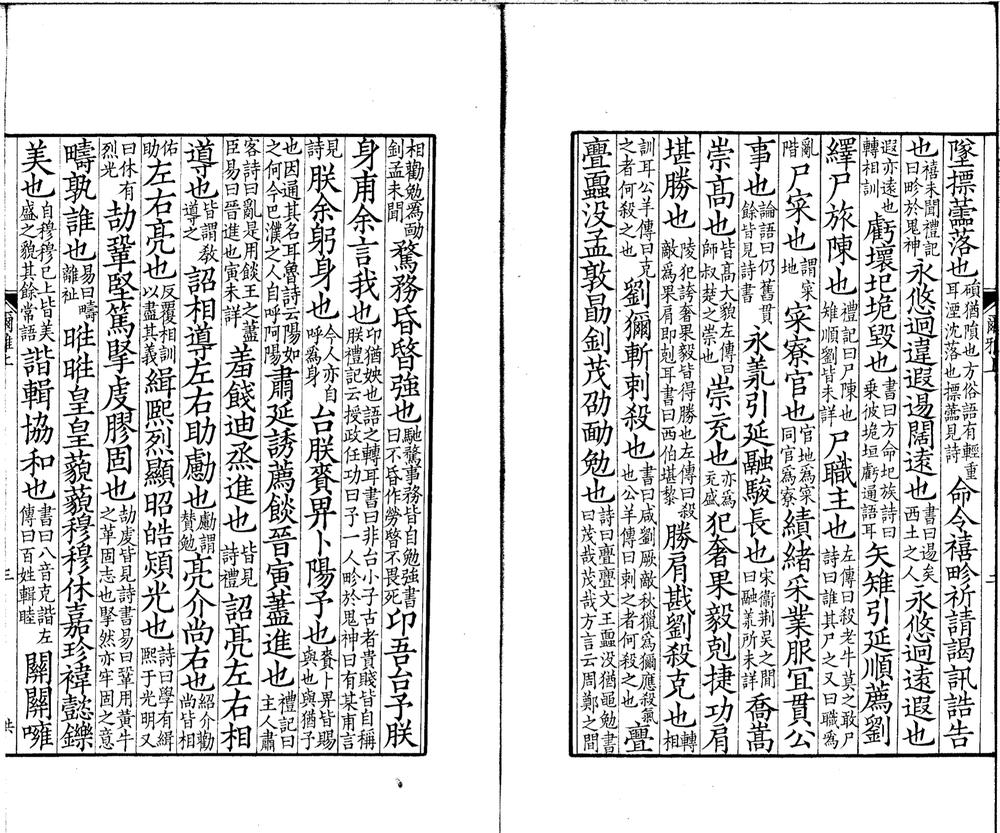 墜摽蘦落也碩猶隕也方俗語有輕重耳湮沈落也摽蘦見詩命令禧畛祈請謁訊誥告
也禧未聞禮記曰畛於鬼神永悠迥違遐逷闊遠也書曰逷矣西土之人永悠迥遠遐也
遐亦遠也轉相訓虧壞圮垝毀也書曰方命圮族詩曰乘彼垝垣虧通語耳矢雉引延順薦劉
繹尸旅陳也禮記曰尸陳也雉順劉皆未詳尸職主也左傳曰殺老牛莫之敢尸詩曰誰其尸之又曰職爲
亂階尸寀也謂寀地寀寮官也官地爲寀同官爲寮績緒采業服宜貫公
事也論語曰仍舊貫餘皆見詩書永羕引延融駿長也宋衞荆吴之間曰融羕所未詳喬嵩
崇高也皆高大貌左傳曰師叔楚之崇也崇充也亦爲充盛犯奢果毅剋捷功肩
堪勝也陵犯誇奢果毅皆得勝也左傳曰殺敵爲果肩即剋耳書曰西伯堪黎勝肩戡劉殺克也轉相
訓耳公羊傳曰克之者何殺之也劉獮斬刺殺也書曰咸劉厥敵秋獵爲獮應殺氣也公羊傳曰刺之者何殺之也亹
亹蠠没孟敦勗釗茂劭勔勉也詩曰亹亹文王蠠没猶黽勉書曰茂哉茂哉方言云周鄭之間
相勸勉爲勔釗孟未聞騖務昏暋強也馳騖事務皆自勉強書曰不昏作勞暋不畏死卬吾台予朕
身甫余言我也卬猶姎也語之轉耳書曰非台小子古者貴賤皆自稱朕禮記云授政任功曰予一人畛於鬼神曰有某甫言
見詩朕余躬身也今人亦自呼爲身台朕賚畀卜陽予也賚卜畀皆賜與也與猶予
也因通其名耳魯詩云陽如之何今巴濮之人自呼阿陽肅延誘薦餤晉寅藎進也禮記曰主人肅
客詩曰亂是用餤王之藎臣易曰晉進也寅未詳羞餞迪烝進也皆見詩禮詔亮左右相
導也皆謂教導之詔相導左右助勴也勴謂贊勉亮介尚右也紹介勸尚皆相
佑助左右亮也反覆相訓以盡其義緝熙烈顯昭皓熲光也詩曰學有緝熙于光明又
曰休有烈光劼鞏堅篤掔虔膠固也劼虔皆見詩書易曰鞏用黃牛之革固志也掔然亦牢固之意
疇孰誰也易曰疇離祉暀暀皇皇藐藐穆穆休嘉珍禕懿鑠
美也自穆穆已上皆美盛之貌其餘常語諧輯協和也書曰八音克諧左傳曰百姓輯睦關關噰
爾雅上
三